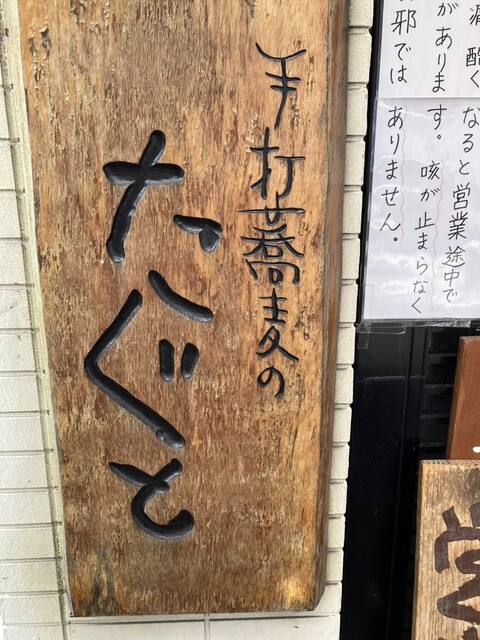 手打蕎麦の
たぐと
酷くなると営業途中で
があります。咳が止まらなく
邪ではありません。
営